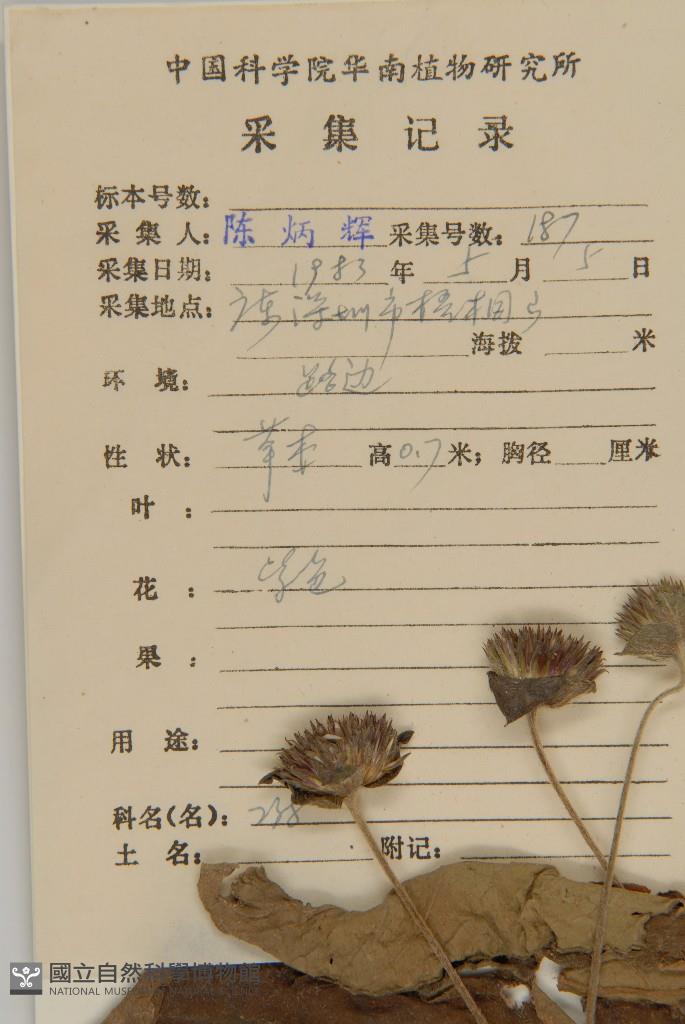 中国科学院华南植物研究所
采集记录
标本号数：
采集人：陈炳辉 采集号数：187
采集日期：1983年5月5日
采集地点：广东深圳市梧桐山
海拨 米
环境：路边
性状：草本 高0.7米；胸径 厘米
叶：
花：紫色
果：
用途：
科名(名)：238
土名： 附记：
國立自然科學博物館
NATIONAL MUSEUM